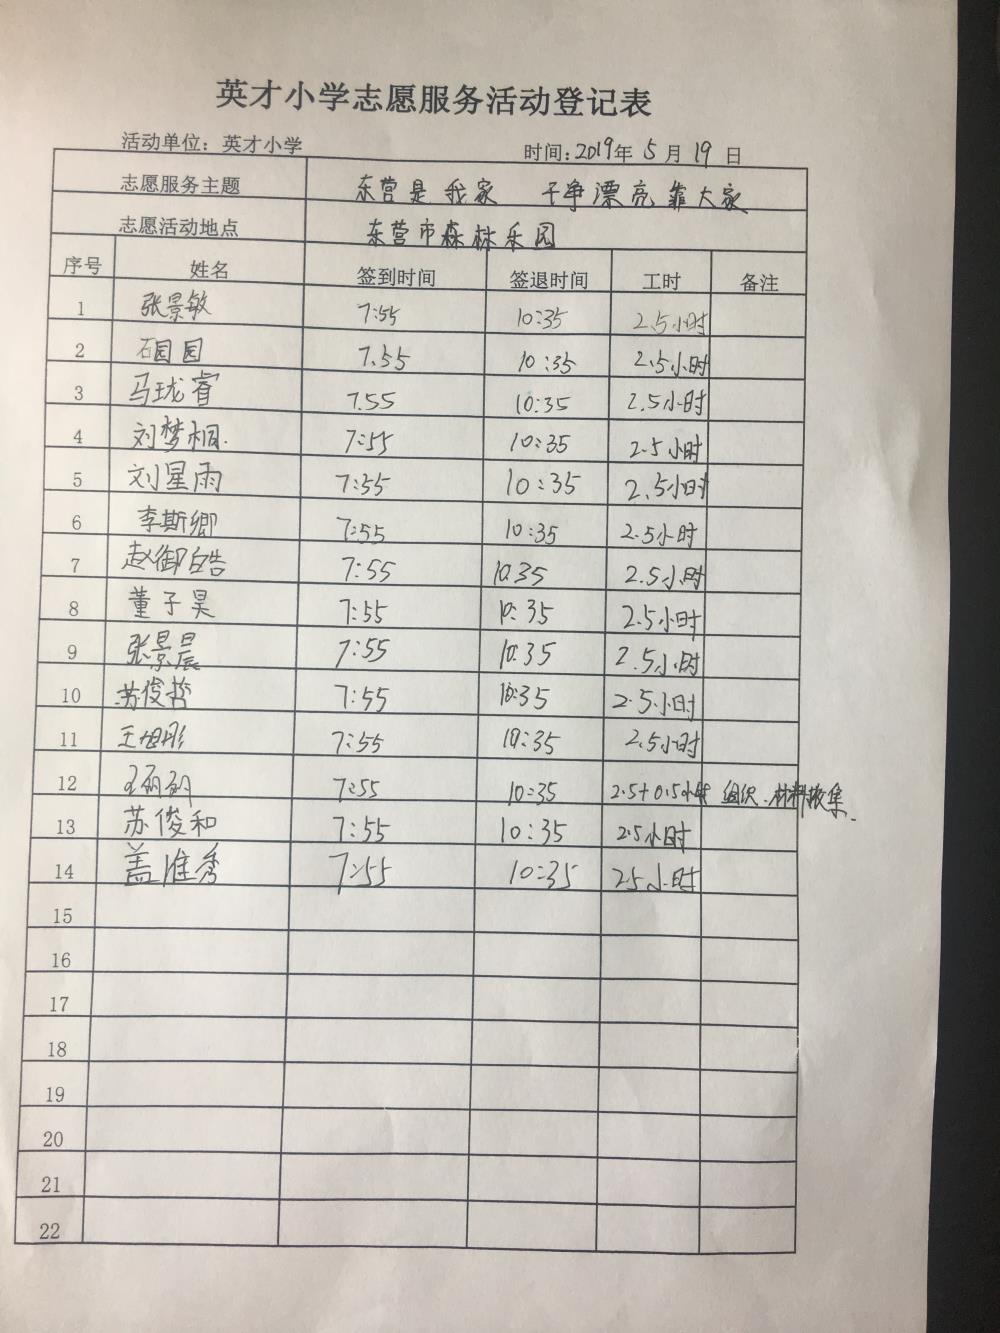 英才小学志愿服务活动登记表
活动单位：英才小学 时间：2019年 5 月 19 日
志愿服务主题 东营是我家 干净漂亮靠大家
志愿活动地点 东营市森林乐园
序号 姓名 签到时间 签退时间 工时 备注
1 张景敏 7:55 10:35 2.5小时
2 石园园 7.55 10:35 2.5小时
3 马珑睿 7.55 10:35 2.5小时
4 刘梦桐. 7:55 10:35 2.5小时
5 刘星雨 7:55 10:35 2.5小时
6 李斯卿 7:55 10:35 2.5小时
7 赵御皓 7:55 10.35 2.5小时
8 董子昊 7:55 10:35 2.5小时
9 张景晨 7:55 10:35 2.5小时
10 苏俊哲 7:55 10:35 2.5小时
11 王旭彤 7:55 10:35 2.5小时
12 7:55 10:35 2.5+0.5小时 组织、材料收集.
13 苏俊和 7:55 10:35 2.5小时
14 盖淮秀 7:55 10:35 2.5小时
15
16
17
18
19
20
21
22